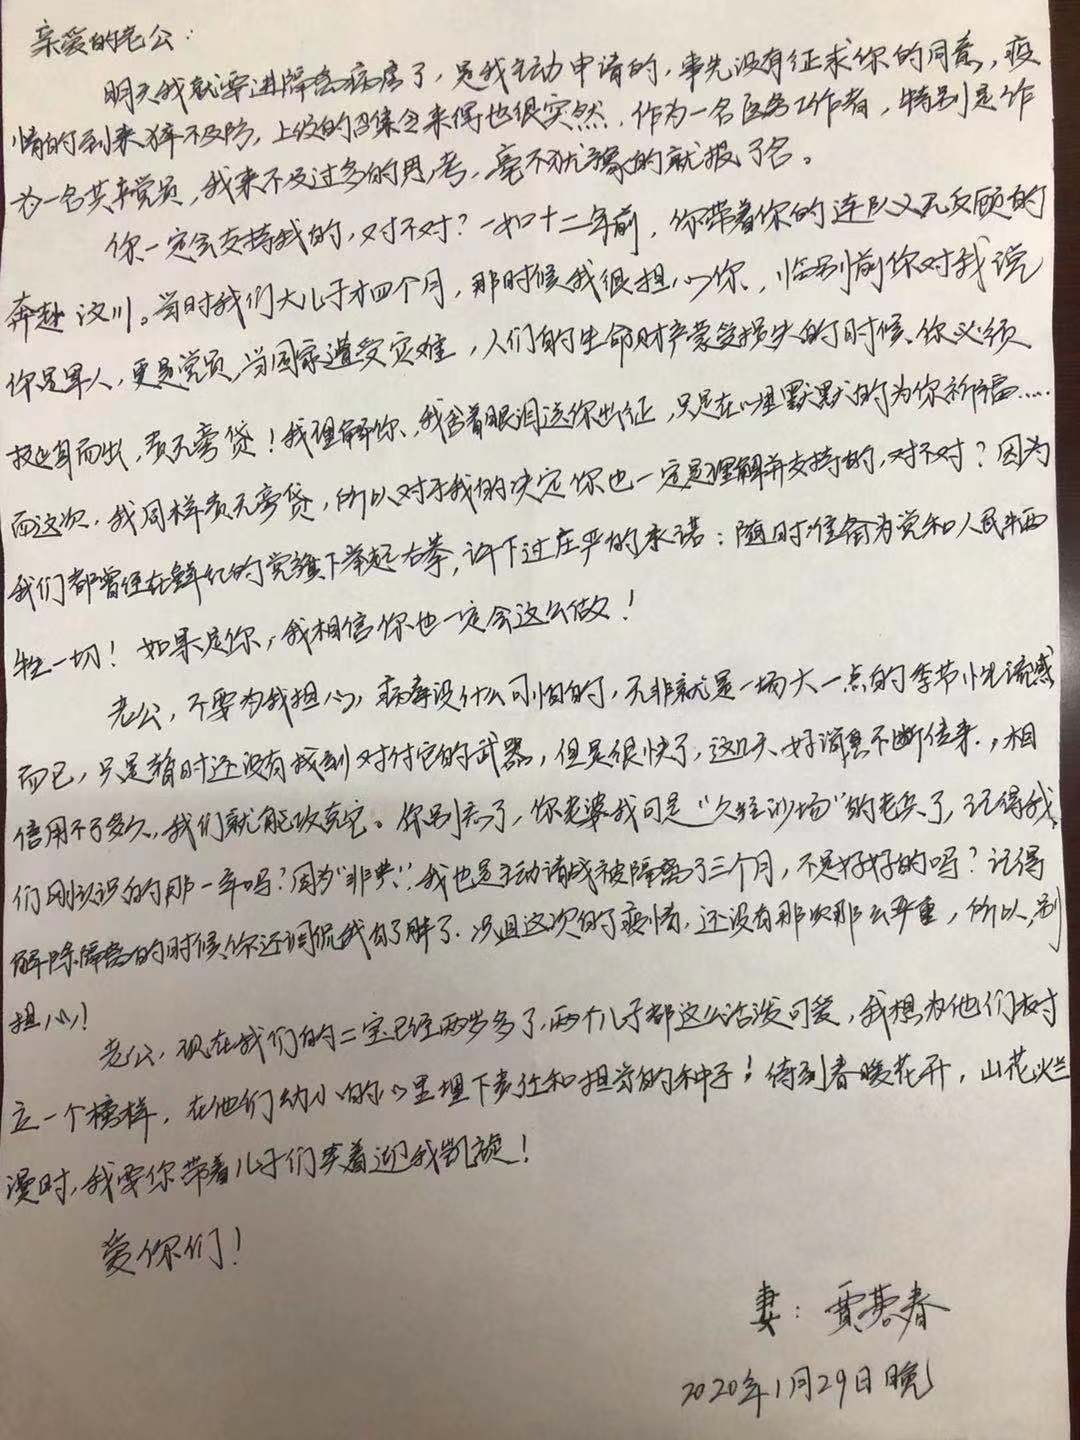 亲爱的老公：
明天我就要进隔离病房了，是我主动申请的，事先没有征求你的同意，疫
情的到来猝不及防，上级的召集令来得也很突然，作为一名医务工作者，特别是作
为一名共产党员，我来不及过多的思考，毫不犹豫的就报了名。
你一定会支持我的，对不对？一如十二年前，你带着你的连队义无反顾的
奔赴汶川。当时我们大儿子才四个月，那时候我很担心你，临别前你对我说
你是军人，更是党员，当国家遭受灾难，人们的生命财产蒙受损失的时候、你必须
挺身而出，责无旁贷！我理解你、我含着眼泪送你出征，只是在心里默默的为你祈福……
而这次，我同样责无旁贷，所以对于我的决定你也一定是理解并支持的，对不对？因为
我们都曾经在鲜红的党旗下举起右拳，许下过庄严的承诺：随时准备为党和人民牺
牲一切！如果是你，我相信你也一定会这么做！
老公，不要为我担心，病毒没什么可怕的，无非就是一场大一点的季节性流感
而已，只是暂时还没有找到对付它的武器，但是很快了，这几天、好消息不断传来，相
信用不了多久，我们就能攻克它。你别忘了，你老婆我可是“久经沙场”的老兵了，记得我
们刚认识的那一年吗？因为“非典”，我也是主动请战被隔离了三个月，不是好好的吗？记得
解除隔离的时候你还调侃我白了胖了．况且这次的疫情，还没有那次那么严重，所以，别
担心！
老公，现在我们的二宝已经两岁多了，两个儿子都这么活泼可爱，我想为他们树
立一个榜样，在他们幼小的心里埋下责任和担当的种子！待到春暖花开，山花烂
漫时，我要你带着儿子们笑着迎我凯旋！
爱你们！
妻：贾春
2020年1月29日晚